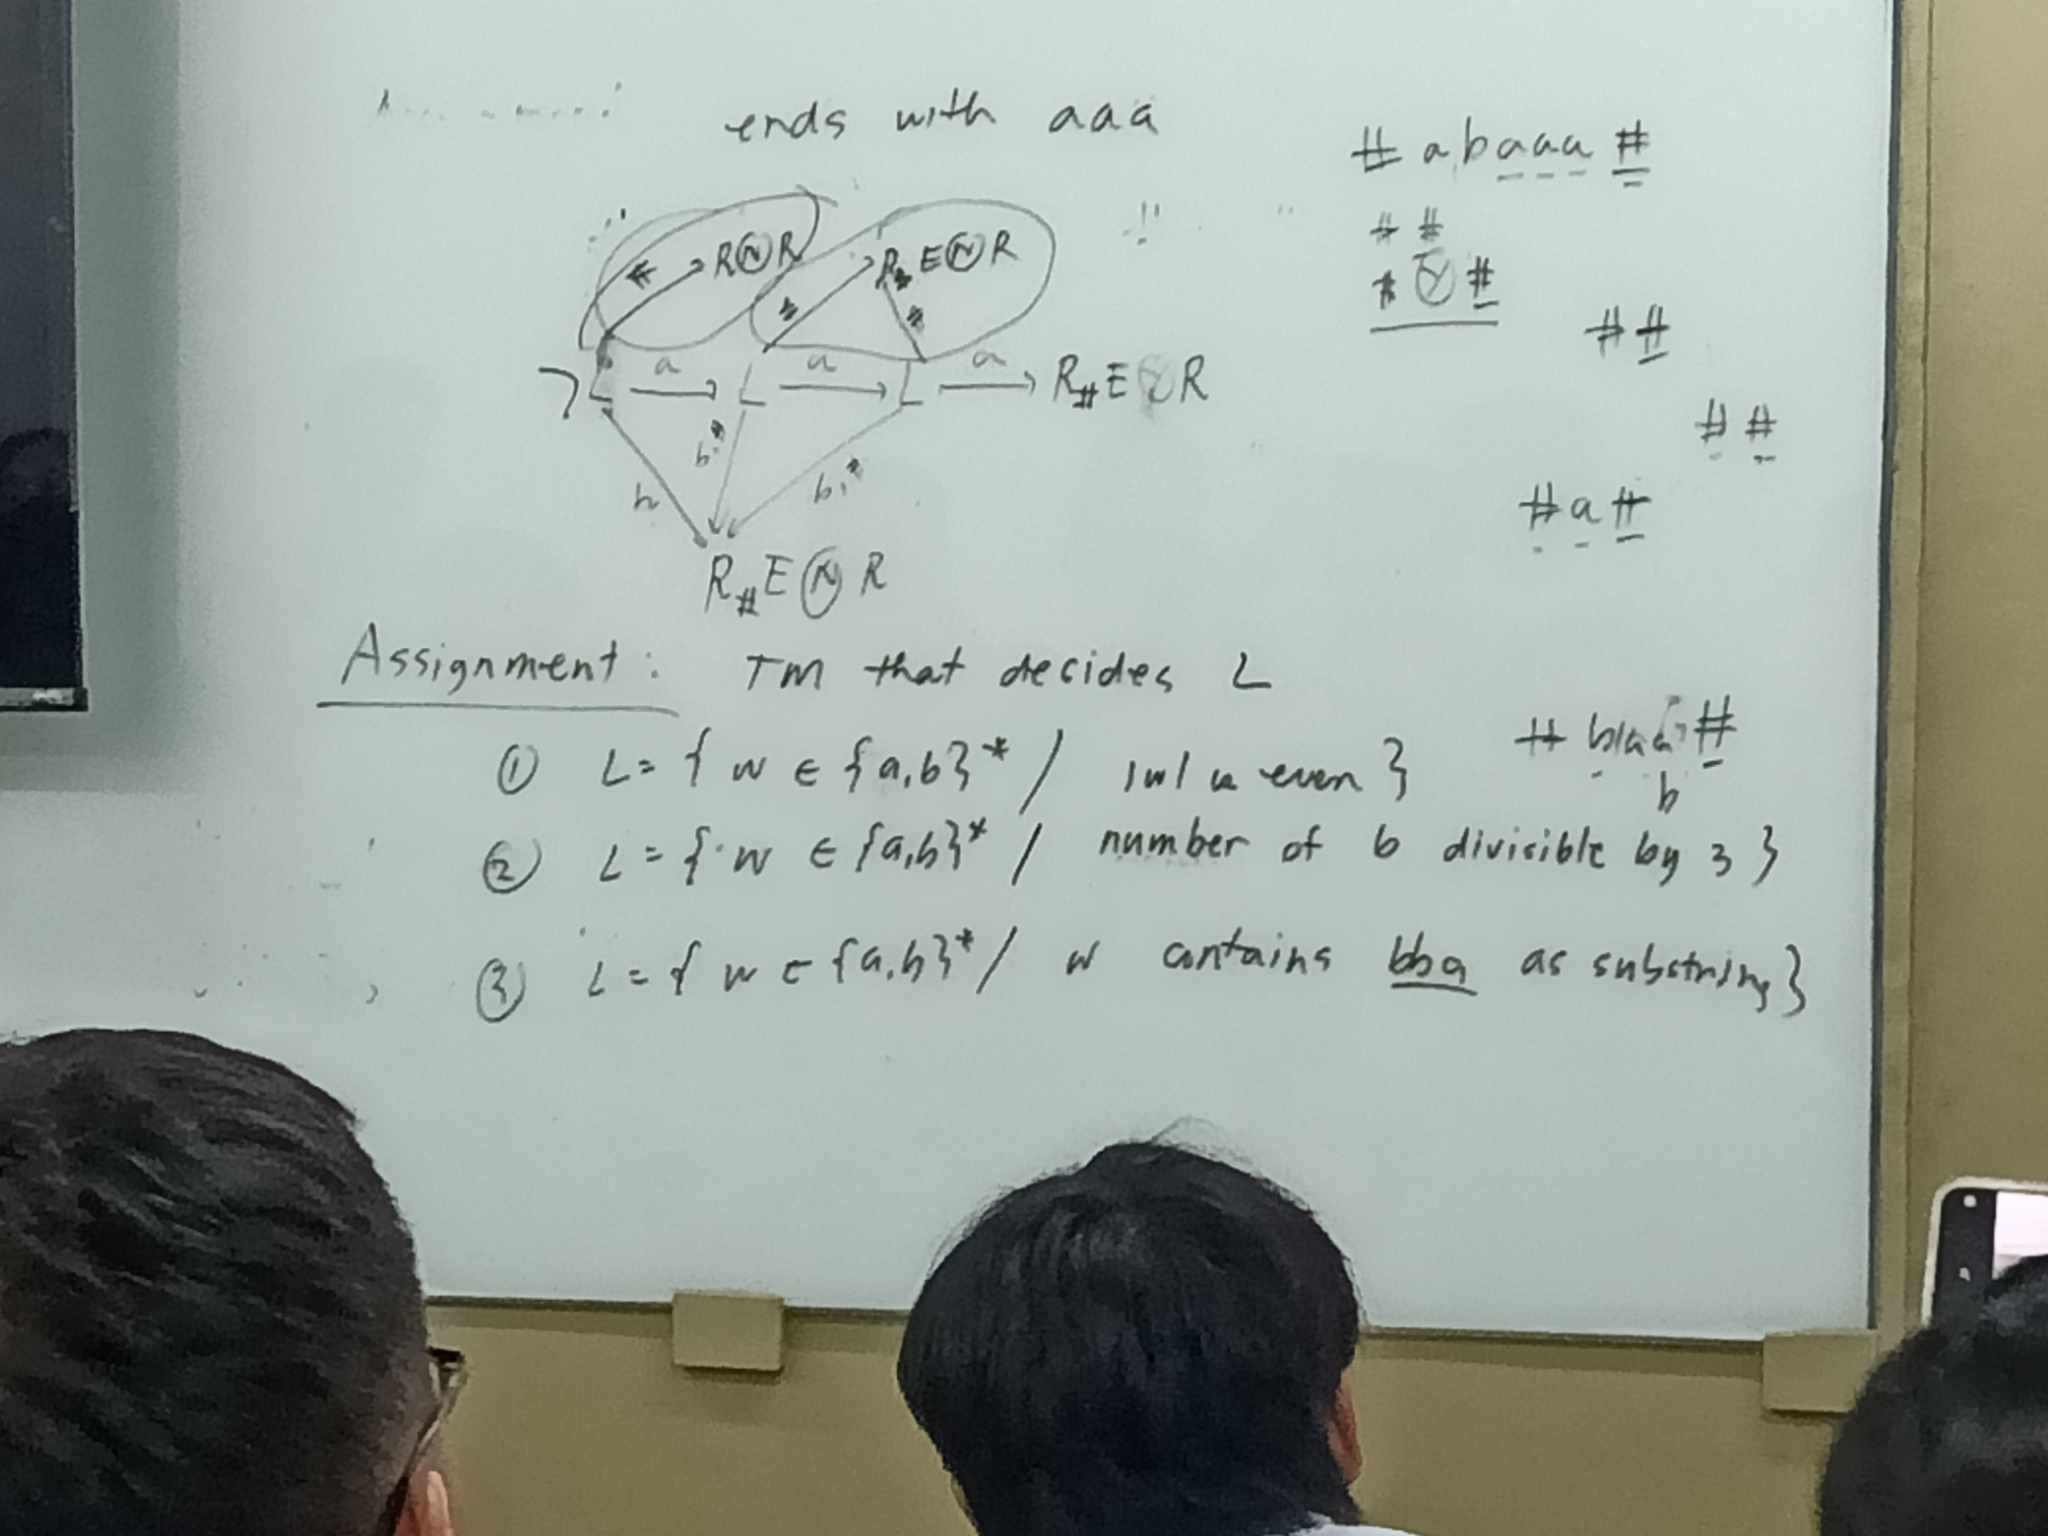 ends with aaa
# abaaa #
# #
# Ⓨ #
# #
# #
# a #
# R Ⓝ R
# # R# E Ⓝ R
> L a L a L a R# E Y R
b b,# b,#
R# E Ⓝ R
Assignment: TM that decides L
① L = { w ∈ {a,b}* / |w| is even }
# b
b
② L = { w ∈ {a,b}* / number of b divisible by 3 }
③ L = { w ∈ {a,b}* / w contains bba as substring }